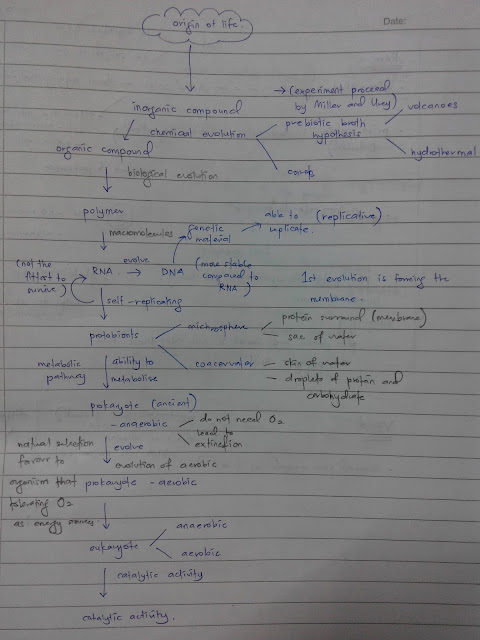 origin of life.
Date:
→ (experiment proceed
by Miller and Urey)
inorganic compound
volcanoes
prebiotic broth
hypothesis
chemical evolution
hydrothermal
organic compound
biological evolution
polymer
macromolecules
genetic
material
able to (replicative)
replicate.
evolve
(not the
fittest to
survive)
RNA → DNA
(more stable
compared to
RNA)
1st evolution is forming the
membrane.
self-replicating
protobionts
microsphere
protein surround (membrane)
sac of water
coacervates
skin of water
droplets of protein and
carbohydrate
metabolic
pathway
ability to
metabolise
pokayote (ancient)
- anaerobic
do not need O2
lead to
extinction
natural selection
favour to
organism that
tolerating O2
as energy
evolve
evolution of aerobic
prokayote - aerobic
eukayote
anaerobic
aerobic
catalytic activity
catalytic activity.